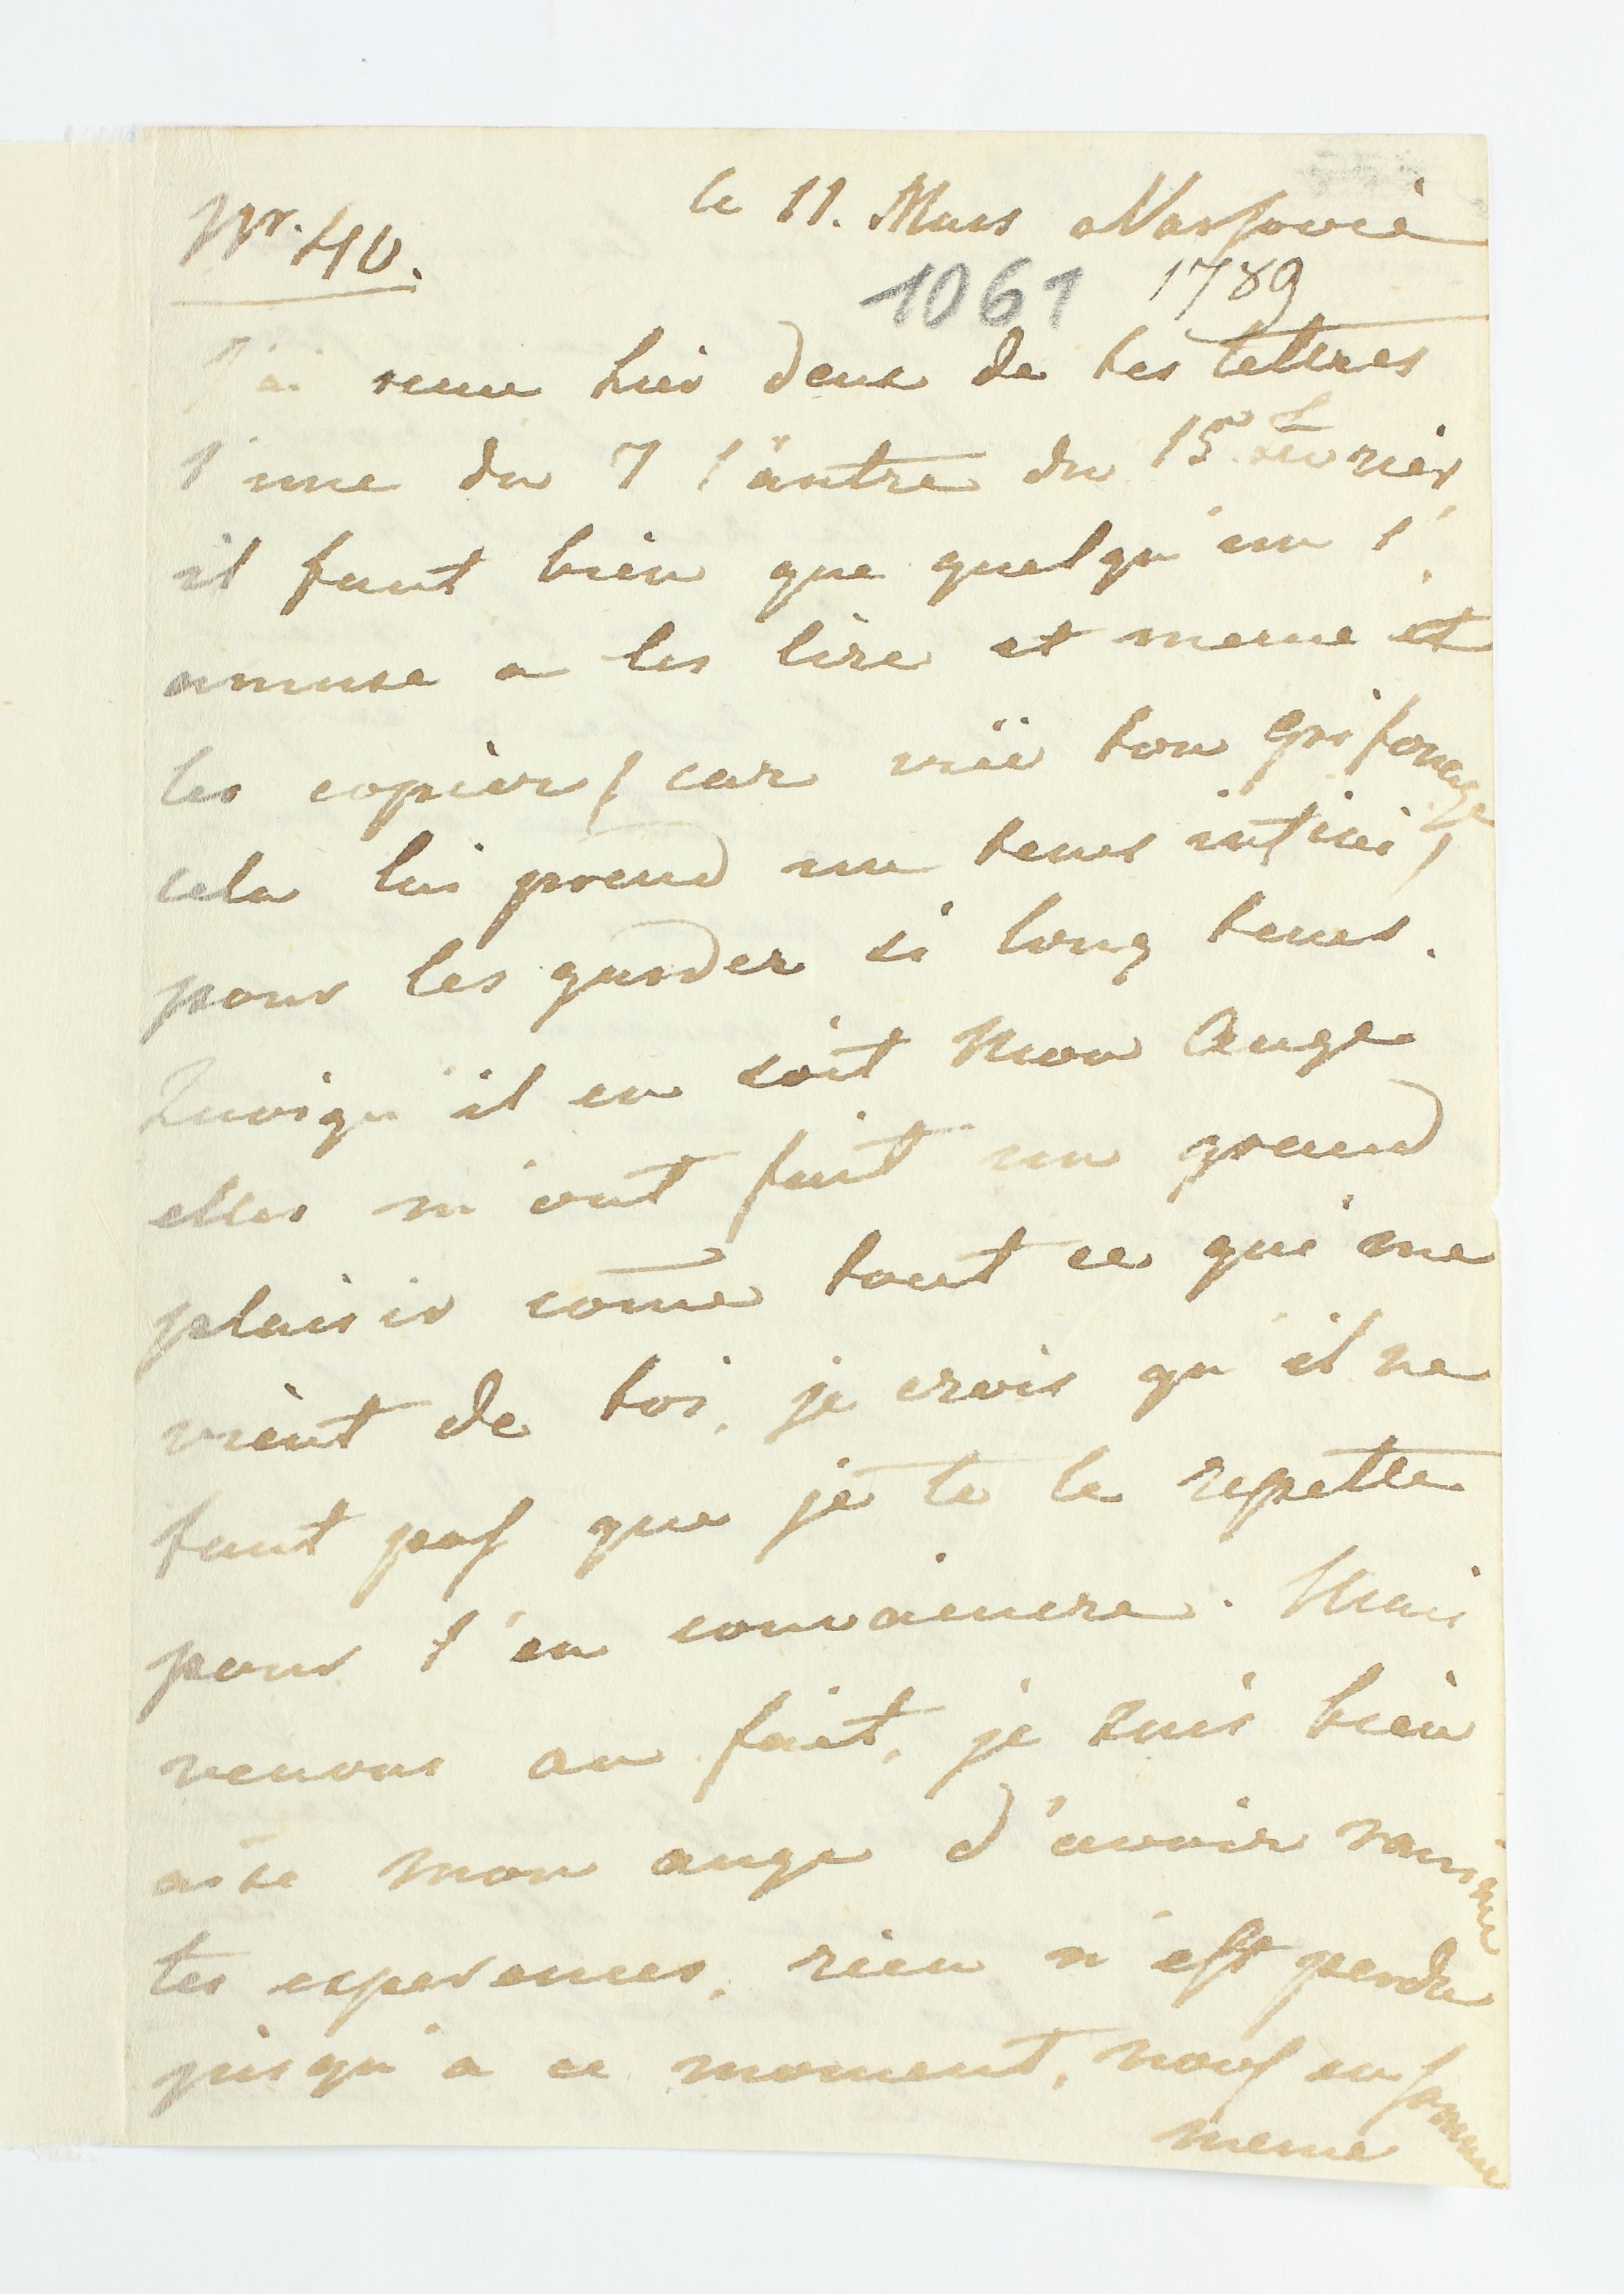 Nr. 40.
le 11. Mars a Varsovie
1061 1789
J'ai recu hier deux de tes lettres
l'une du 7 l'autre du 15 fevrier,
il faut bien que quelqu'un s'
amuse a les lire et meme et
les copier / car vüe ton grifonage
cela lui prend un tems infini /
pour les garder si long tems.
Quoiqu'il en soit Mon Ange
elles m'ont fait un grand
plaisir come tout ce qui me
vient de toi, je crois qu'il ne
faut pas que je te le repette
pour t'en convaincre. Mais
venons au fait, je suis bien
aise mon ange d'avoir ranimé
tes esperences, rien n'est perdu
jusqu'a ce moment, nous en sommes
meme